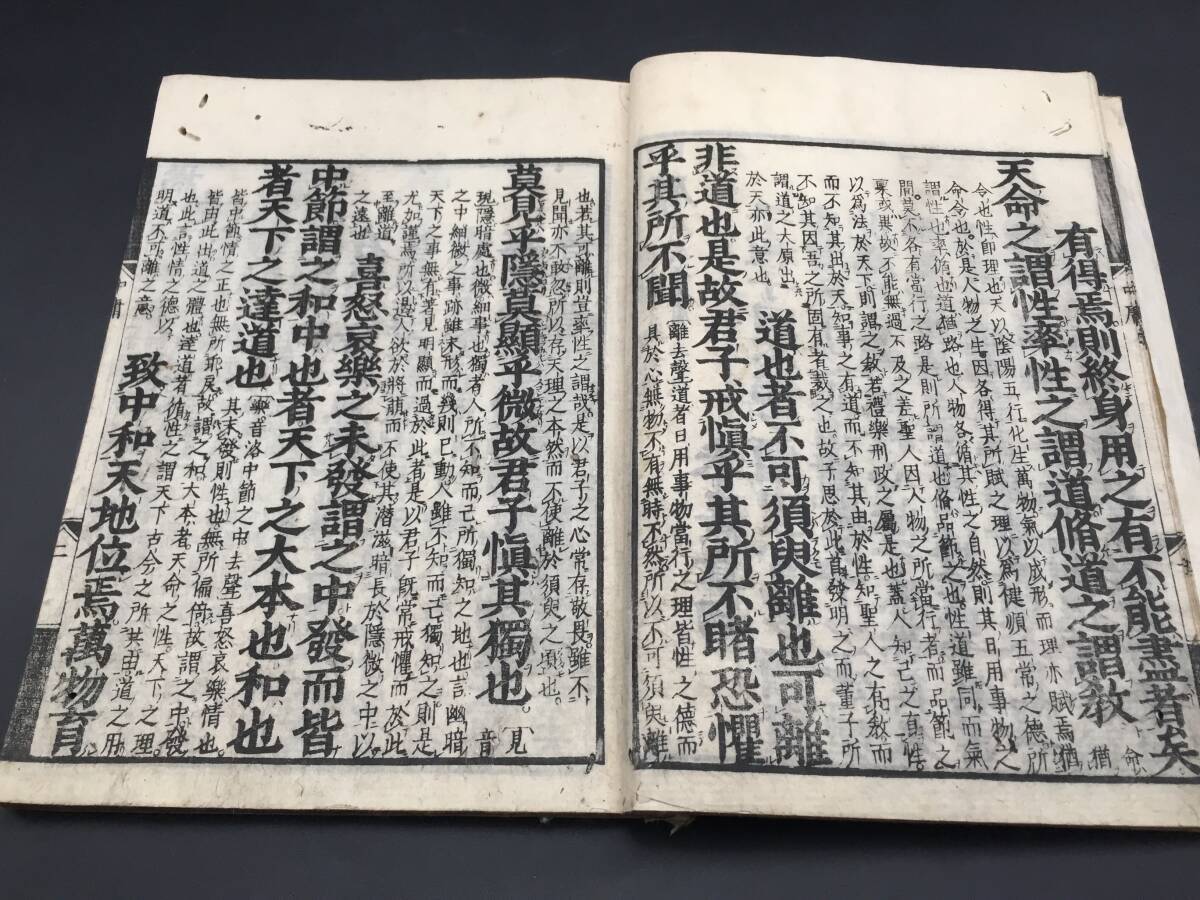 有得焉則終身用之有不能盡者矣
天命之謂性率性之謂道脩道之謂教
命
猶
令也性即理也天以陰陽五行化生萬物氣以成形而理亦賦焉猶
命令也於是人物之生因各得其所賦之理以爲健順五常之德所
謂性也率循也道猶路也人物各循其性之自然則其日用事物之
間莫不各有當行之路是則所謂道也脩品節之也性道雖同而氣
稟或異故不能無過不及之差聖人因人物之所當行者而品節之
以爲法於天下則謂之教若禮樂刑政之屬是也蓋人知己之有性
而不知其出於天知事之有道而不知其由於性知聖人之有教而
不知其因吾之所固有者裁之也故子思於此首發明之而董子所
謂道之大原出
於天亦此意也
道也者不可須臾離也可離
非道也是故君子戒愼乎其所不睹恐懼
乎其所不聞
離去聲道者日用事物當行之理皆性之德而
具於心無物不有無時不然所以不可須臾離
也若其可離則豈率性之謂哉是以君子之心常存敬畏雖不
見聞亦不敢忽所以存天理之本然而不使離於須臾之頃也
莫見乎隱莫顯乎微故君子愼其獨也
見
音
現隱暗處也微細事也獨者人所不知而己所獨知之地也言幽暗
之中細微之事跡雖未形而幾則已動人雖不知而己獨知之則是
天下之事無有著見明顯而過於此者是以君子既常戒懼而於此
尤加謹焉所以遏人欲於將萠而不使其潜滋暗長於隱微之中以
至離道
之遠也
喜怒哀樂之未發謂之中發而皆
中節謂之和中也者天下之大本也和也
者天下之達道也
樂音洛中節之中去聲喜怒哀樂情也
其未發則性也無所偏倚故謂之中發
皆中節情之正也無所乖戾故謂之和大本者天命之性天下之理
皆由此出道之體也達道者循性之謂天下古今之所共由道之用
也此言性情之德以
明道不可離之意
致中和天地位焉萬物育